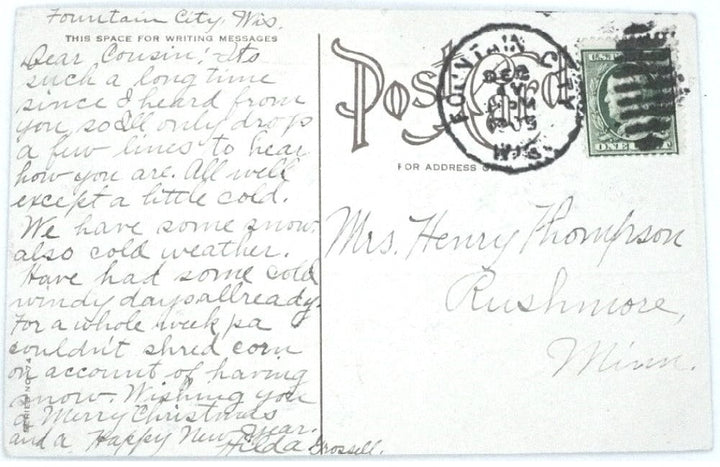 Fountain City, Wis.
THIS SPACE FOR WRITING MESSAGES
Dear Cousin:- Its
such a long time
since I heard from
you, so Ill only drop
a few lines to hear
how you are. All well
except a little cold.
We have some snow
also cold weather.
Have had some cold
windy days allready.
For a whole week pa
couldn't shred corn
on account of having
snow. Wishing you
a Merry Christmas
and a Happy New Year.
Hilda Grossell.
SERIES NO.
Post Card
FOUNTAIN CITY
DEC
PM
WIS.
FOR ADDRESS ONLY
ONE CENT
Mrs. Henry Thompson
Rushmore,
Minn.